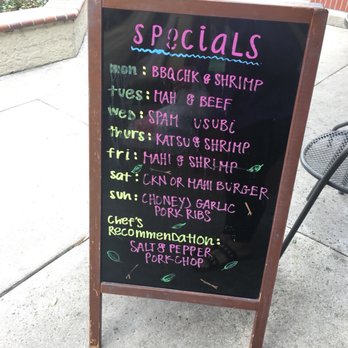 SPeciaLS
mon: BBQ CHK & SHRIMP
tues: MAH & BEEF
wed: SPAM USUBI
thurs: KATSU & SHRIMP
fri: MAHI & SHRIMP
sat: CKN OR MAHI BURGER
sun: (HONEY) GARLIC
PORK RIBS
Chef's
Recommendation:
SALT & PEPPER
PORK CHOP